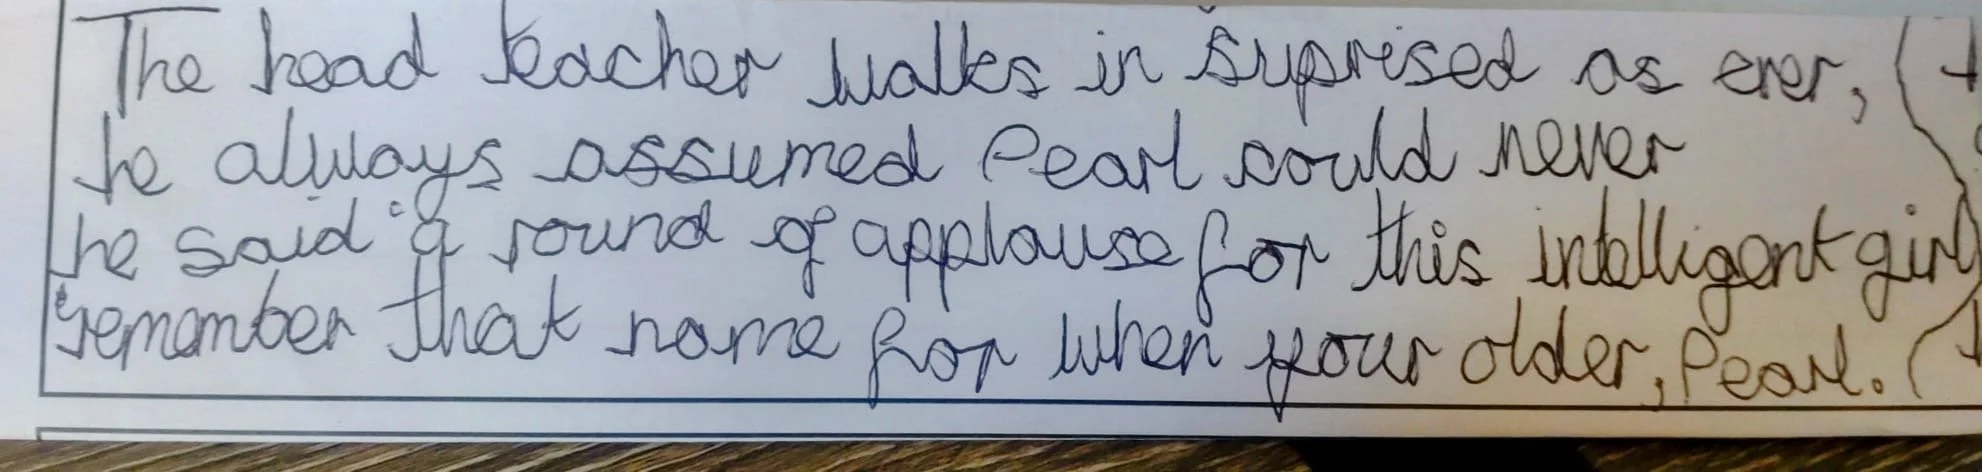 The head teacher walks in suprised as ever,
he always assumed Pearl could never
he said "a round of applause for this intelligent girl
remember that name for when your older, Pearl.